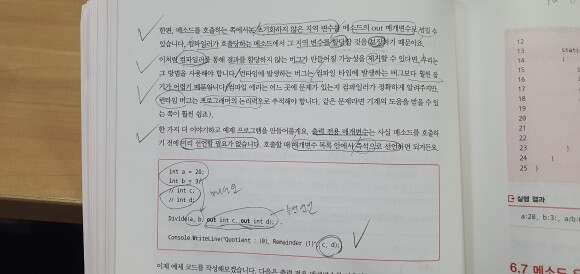 한편, 메소드를 호출하는 쪽에서는 초기화하지 않은 지역 변수를 메소드의 out 매개변수로 넘길 수
있습니다. 컴파일러가 호출당하는 메소드에서 그 지역 변수를 할당할 것을 보장하기 때문이죠.
이처럼 컴파일러를 통해 결과를 할당하지 않는 버그가 만들어질 가능성을 제거할 수 있다면, 우리는
그 방법을 사용해야 합니다. 런타임에 발생하는 버그는 컴파일 타임에 발생하는 버그보다 훨씬 잡
기가 어렵기 때문입니다(컴파일 에러는 어느 곳에 문제가 있는지 컴파일러가 정확하게 알려주지만,
런타임 버그는 프로그래머의 논리력으로 추적해야 합니다. 같은 문제라면 기계의 도움을 받을 수 있
는 쪽이 훨씬 쉽죠).
한 가지 더 이야기하고 예제 프로그램을 만들어볼게요. 출력 전용 매개변수는 사실 메소드를 호출하
기 전에 미리 선언할 필요가 없습니다. 호출할 때 매개변수 목록 안에서 즉석으로 선언하면 되거든요.
int a = 20;
int b = 3;
// int c;
// int d;
Divide(a, b, out int c, out int d);
Console.WriteLine("Quotient : {0}, Remainder {1}", c, d);
이제 예제 코드를 작성해보겠습니다. 다음은 출력 전용
12
13 static
14 {
15
16
17
18
19
20
21
22
23
24 }
25 }
실행 결과
a:20, b:3:, a/b:
6.7 메소드